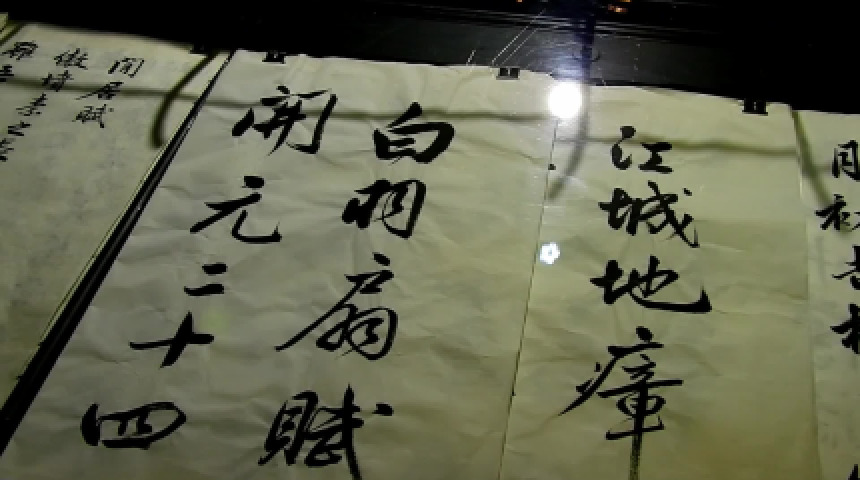 江城地瘴
白羽扇賦
開元二十四
閒居賦
傲墳素之